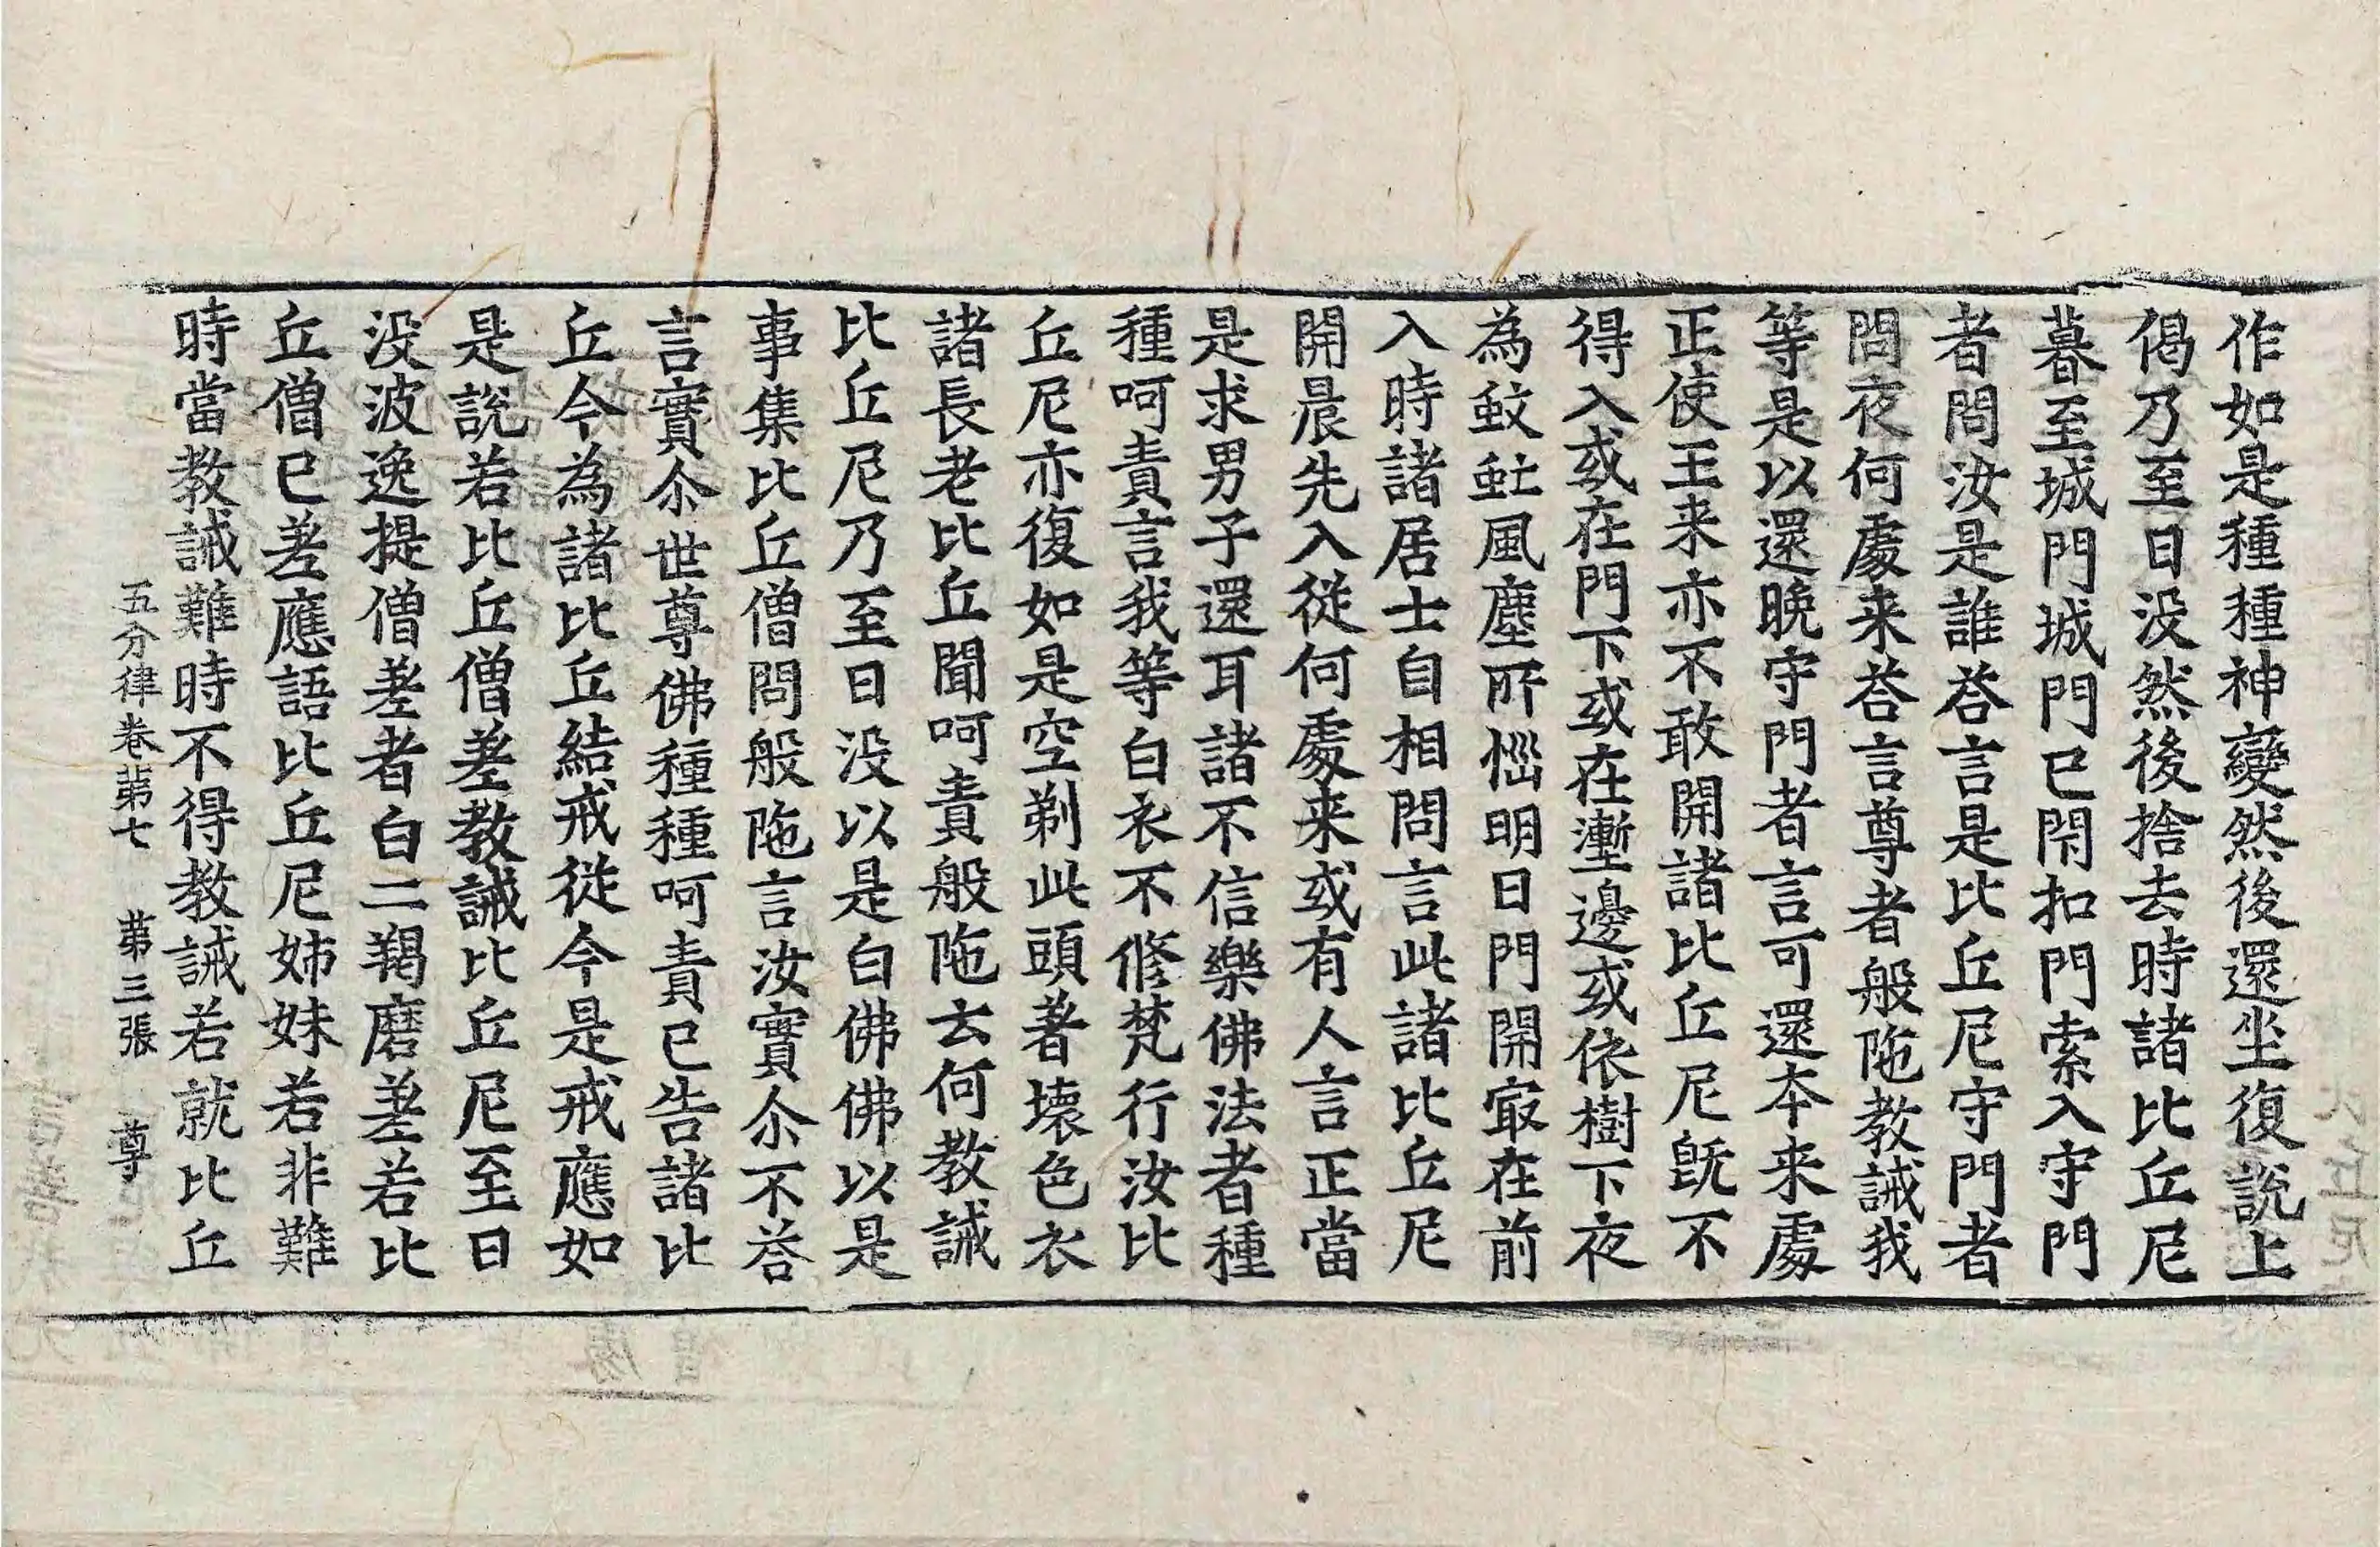 作如是種種神變然後還坐復說上
偈乃至日没然後捨去時諸比丘尼
暮至城門城門已閇扣門索入守門
者問汝是誰荅言是比丘尼守門者
問夜何處来荅言尊者般陁教誡我
等是以還晚守門者言可還本来處
正使王来亦不敢開諸比丘尼旣不
得入或在門下或在壍邊或依樹下夜
為蚊䖟風塵所惱明日門開㝡在前
入時諸居士自相問言此諸比丘尼
開晨先入從何處来或有人言正當
是求男子還耳諸不信樂佛法者種
種呵責言我等白衣不修梵行汝比
丘尼亦復如是空剃此頭著壞色衣
諸長老比丘聞呵責般陁云何教誡
比丘尼乃至日没以是白佛佛以是
事集比丘僧問般陁言汝實尒不荅
言實尒世尊佛種種呵責已告諸比
丘今為諸比丘結戒從今是戒應如
是說若比丘僧差教誡比丘尼至日
没波逸提僧差者白二羯磨差若比
丘僧已差應語比丘尼姊妹若非難
時當教誡難時不得教誡若就比丘
五分律卷苐七 苐三張 尊